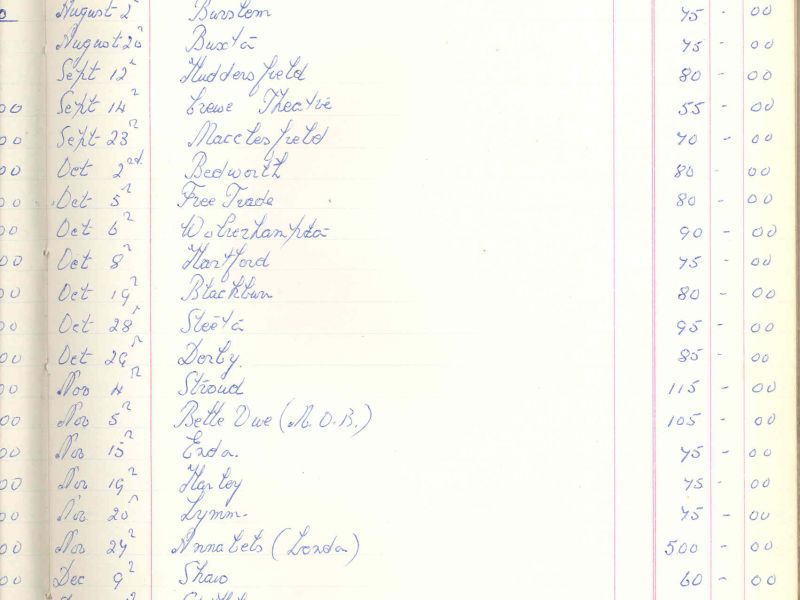 August 2ⁿ Burslem 75 - 00
August 20ⁿ Buxtō 75 - 00
Sept 12ⁿ Huddersfield 80 - 00
00 Sept 14ⁿ Crewe Theatre 55 - 00
00 Sept 23ⁿ Macclesfield 70 - 00
00 Oct 2nd Bedworth 80 - 00
00 Oct 5ⁿ Free Trade 80 - 00
00 Oct 6ⁿ Wolverhamptō 90 - 00
00 Oct 8ⁿ Hartford 75 - 00
00 Oct 19ⁿ Blackburn 80 - 00
00 Oct 28ⁿ 95 - 00
00 Oct 29ⁿ Derby. 85 - 00
00 Nov 4ⁿ Stroud 115 - 00
00 Nov 5ⁿ Belle Vue ( ) 105 - 00
00 Nov 15ⁿ 75 - 00
00 Nov 19ⁿ Hanley 75 - 00
00 Nov 20ⁿ Lymm. 75 - 00
00 Nov 27ⁿ Annabels (London) 500 - 00
00 Dec 9ⁿ Shaw 60 - 00